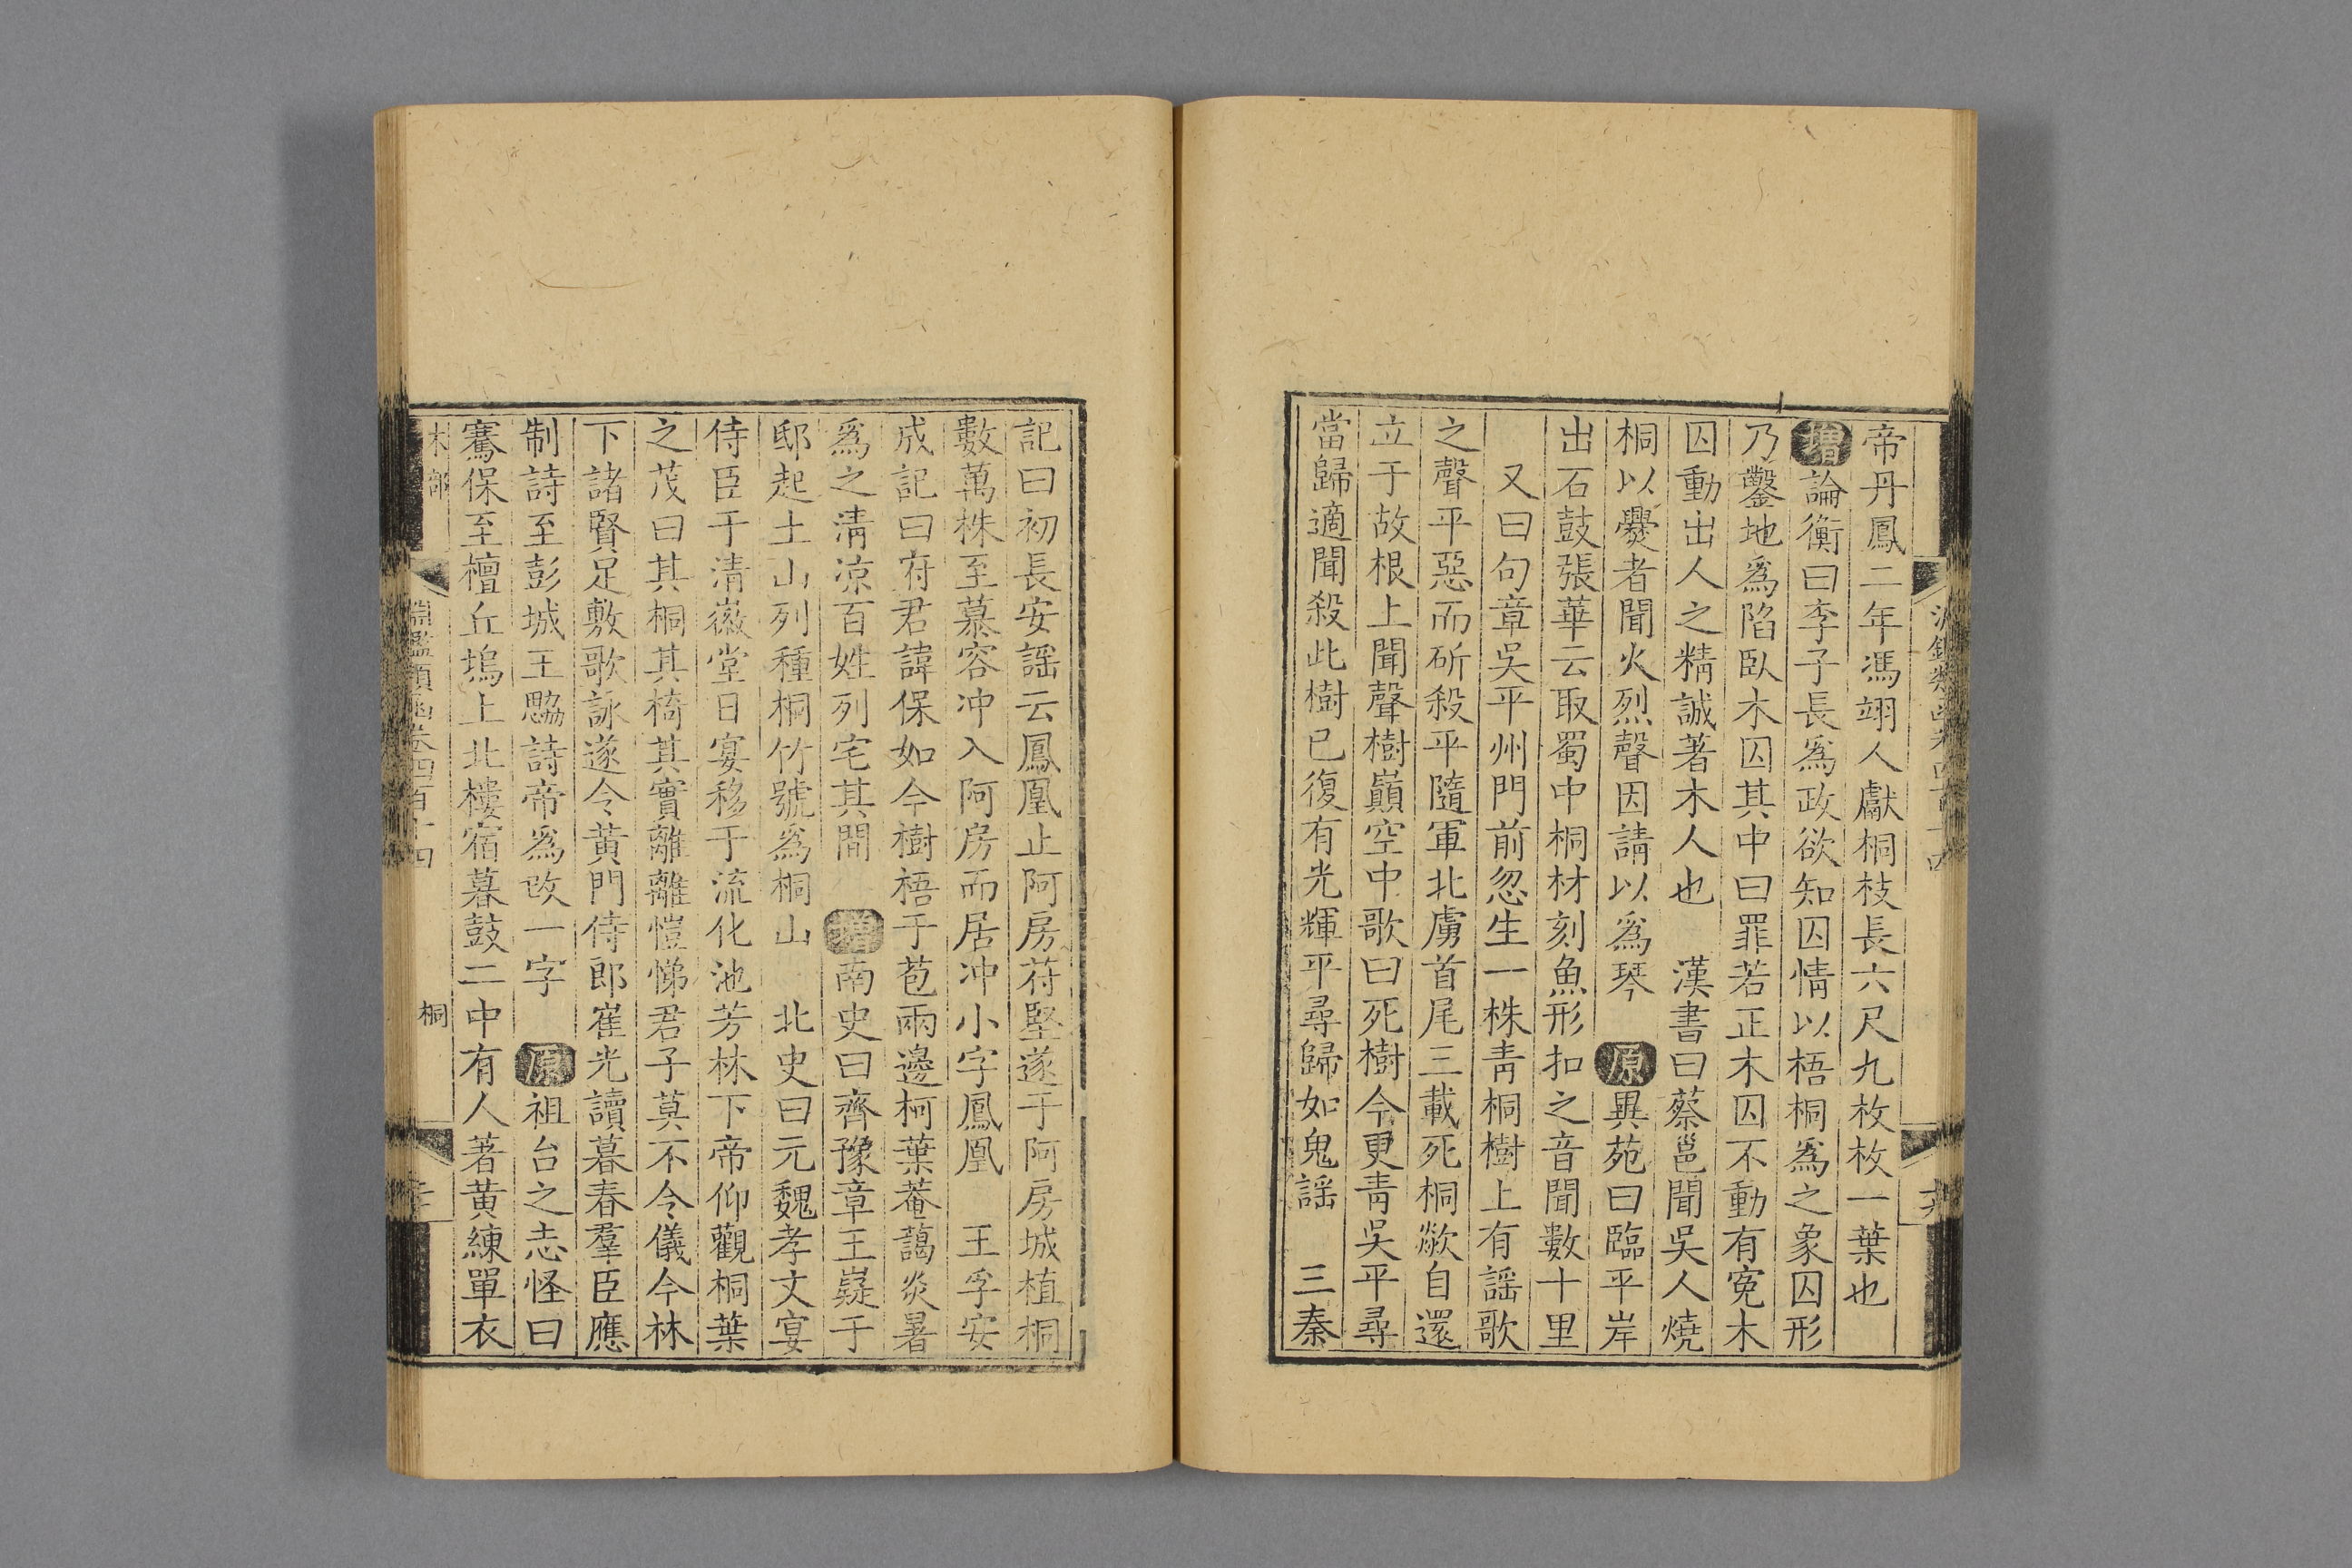 帝丹鳳二年馮翊人獻桐枝長六尺九枚枚一葉也
增論衡曰李子長爲政欲知囚情以梧桐爲之象囚形
乃鑿地爲陷臥木囚其中曰罪若正木囚不動有寃木
囚動出人之精誠著木人也　漢書曰蔡邕聞吳人燒
桐以爨者聞火烈聲因請以爲琴　原異苑曰臨平岸
出石鼓張華云取蜀中桐材刻魚形扣之音聞數十里
又曰句章吳平州門前忽生一株青桐樹上有謡歌
之聲平惡而斫殺平隨軍北虜首尾三載死桐歘自還
立于故根上聞聲樹巔空中歌曰死樹今更青吳平尋
當歸適聞殺此樹已復有光輝平尋歸如鬼謡　三秦
記曰初長安謡云鳳凰止阿房苻堅遂于阿房城植桐
數萬株至慕容冲入阿房而居冲小字鳳凰　王孚安
成記曰府君諱保如今樹梧于苞兩邊柯葉菴藹炎暑
爲之清凉百姓列宅其間　增南史曰齊豫章王嶷于
邸起土山列種桐竹號爲桐山　北史曰元魏孝文宴
侍臣于清徽堂日宴移于流化池芳林下帝仰觀桐葉
之茂曰其桐其椅其實離離愷悌君子莫不令儀今林
下諸賢足敷歌詠遂令黄門侍郎崔光讀暮春羣臣應
制詩至彭城王勰詩帝爲改一字　原祖台之志怪曰
騫保至檀丘塢上北樓宿暮鼓二中有人著黄練單衣
木部
淵鑑類函卷四百十四
桐